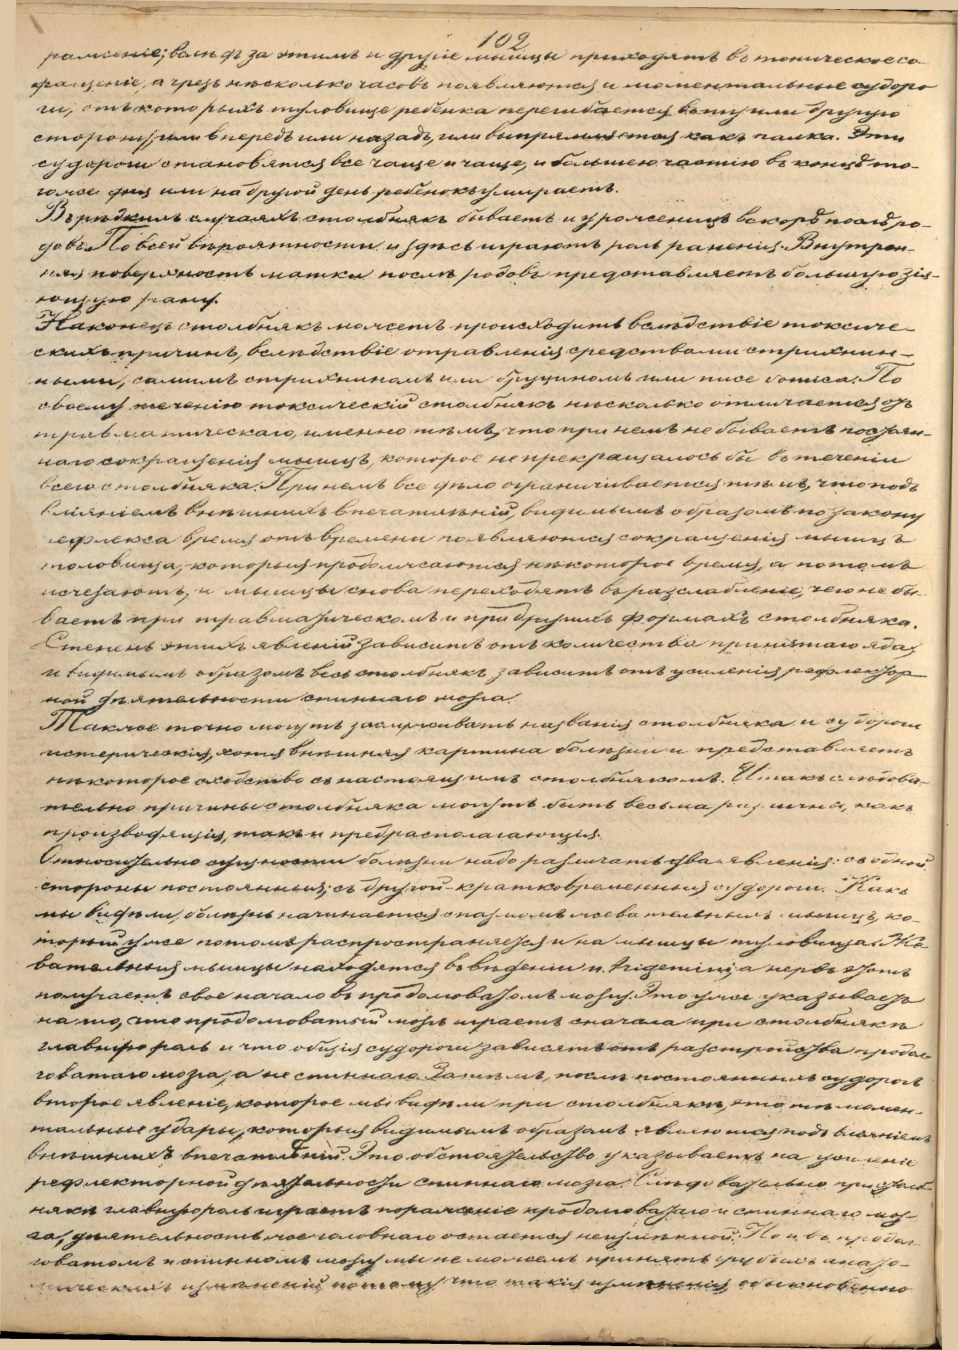 102
ражение; вслѣдъ за этимъ и другіе мышцы приходятъ въ тоническое со-
кращеніе, а чрезъ нѣсколько часовъ появляются и моментальные судоро-
ги, отъ которыхъ туловище ребенка перегибается въ ту или другую
сторону, или впередъ или назадъ, или выпрямляется какъ палка. Эти
судороги становятся все чаще и чаще, и большею частію въ концѣ то-
го же дня или на другой день ребенокъ умираетъ.
Въ рѣдкихъ случаяхъ столбнякъ бываетъ и у роженицъ вскорѣ послѣ ро-
довъ. По всей вѣроятности и здѣсь играютъ роль раненія. Внутрен-
няя поверхность матки послѣ родовъ представляетъ большую зія-
ющую рану.
Наконецъ столбнякъ можетъ происходить вслѣдствіе токсиче-
скихъ причинъ, вслѣдствіе отравленія средствами стрихнин-
ными, самимъ стрихниномъ или бруциномъ или писе vomica. По
своему теченію токсическій столбнякъ нѣсколько отличается отъ
травматическаго, именно тѣмъ, что при немъ не бываетъ постоян-
наго сокращенія мышцъ, которое не прекращалось бы въ теченіи
всего столбняка. При немъ все дѣло ограничивается тѣмъ, что подъ
вліяніемъ внѣшнихъ впечатлѣній, видимымъ образомъ по закону
рефлекса время отъ времени появляются сокращенія мышцъ
туловища, которыя продолжаются нѣкоторое время, а потомъ
исчезаютъ, и мышцы снова переходятъ въ разслабленіе, чего не бы-
ваетъ при травматическомъ и при другихъ формахъ столбняка.
Степень этихъ явленій зависитъ отъ количества принятаго яда
и видимымъ образомъ весь столбнякъ зависитъ отъ усиленія рефлектор-
ной дѣятельности спиннаго мозга.
Также точно могутъ заслуживать названія столбняка и судороги
истерическія, хотя внѣшняя картина болѣзни и представляетъ
нѣкоторое сходство съ настоящимъ столбнякомъ. Итакъ слѣдова-
тельно причины столбняка могутъ быть весьма различны, какъ
производящія, такъ и предрасполагающія.
Относительно сущности болѣзни надо различать два явленія: съ одной
стороны постоянныя, съ другой - кратковременныя судороги. Какъ
мы видѣли, болѣзнь начинается спазмомъ жевательныхъ мышцъ, ко-
торый уже потомъ распространяется и на мышцы туловища. Же-
вательныя мышцы находятся въ вѣденіи n. trigemini, а нервъ этотъ
получаетъ свое начало въ продолговатомъ мозгу. Это уже указываетъ
на то, что продолговатый мозгъ играетъ сначала при столбнякѣ
главную роль и что общія судороги зависятъ отъ разстройства продол-
говатаго мозга, а не спиннаго. Затѣмъ, послѣ постоянныхъ судорогъ
второе явленіе, которое мы видѣли при столбнякѣ, это тѣ момен-
тальные удары, которыя видимымъ образомъ являются подъ вліяніемъ
внѣшнихъ впечатлѣній. Это обстоятельство указываетъ на усиленіе
рефлекторной дѣятельности спиннаго мозга. Слѣдовательно при столб-
някѣ главную роль играетъ пораженіе продолговатаго и спиннаго моз-
га, дѣятельность же головнаго остается неизмѣнной. Но и въ продол-
говатомъ и спинномъ мозгу мы не можемъ принять грубыхъ анато-
мическихъ измѣненій потому, что такія измѣненія обыкновенно